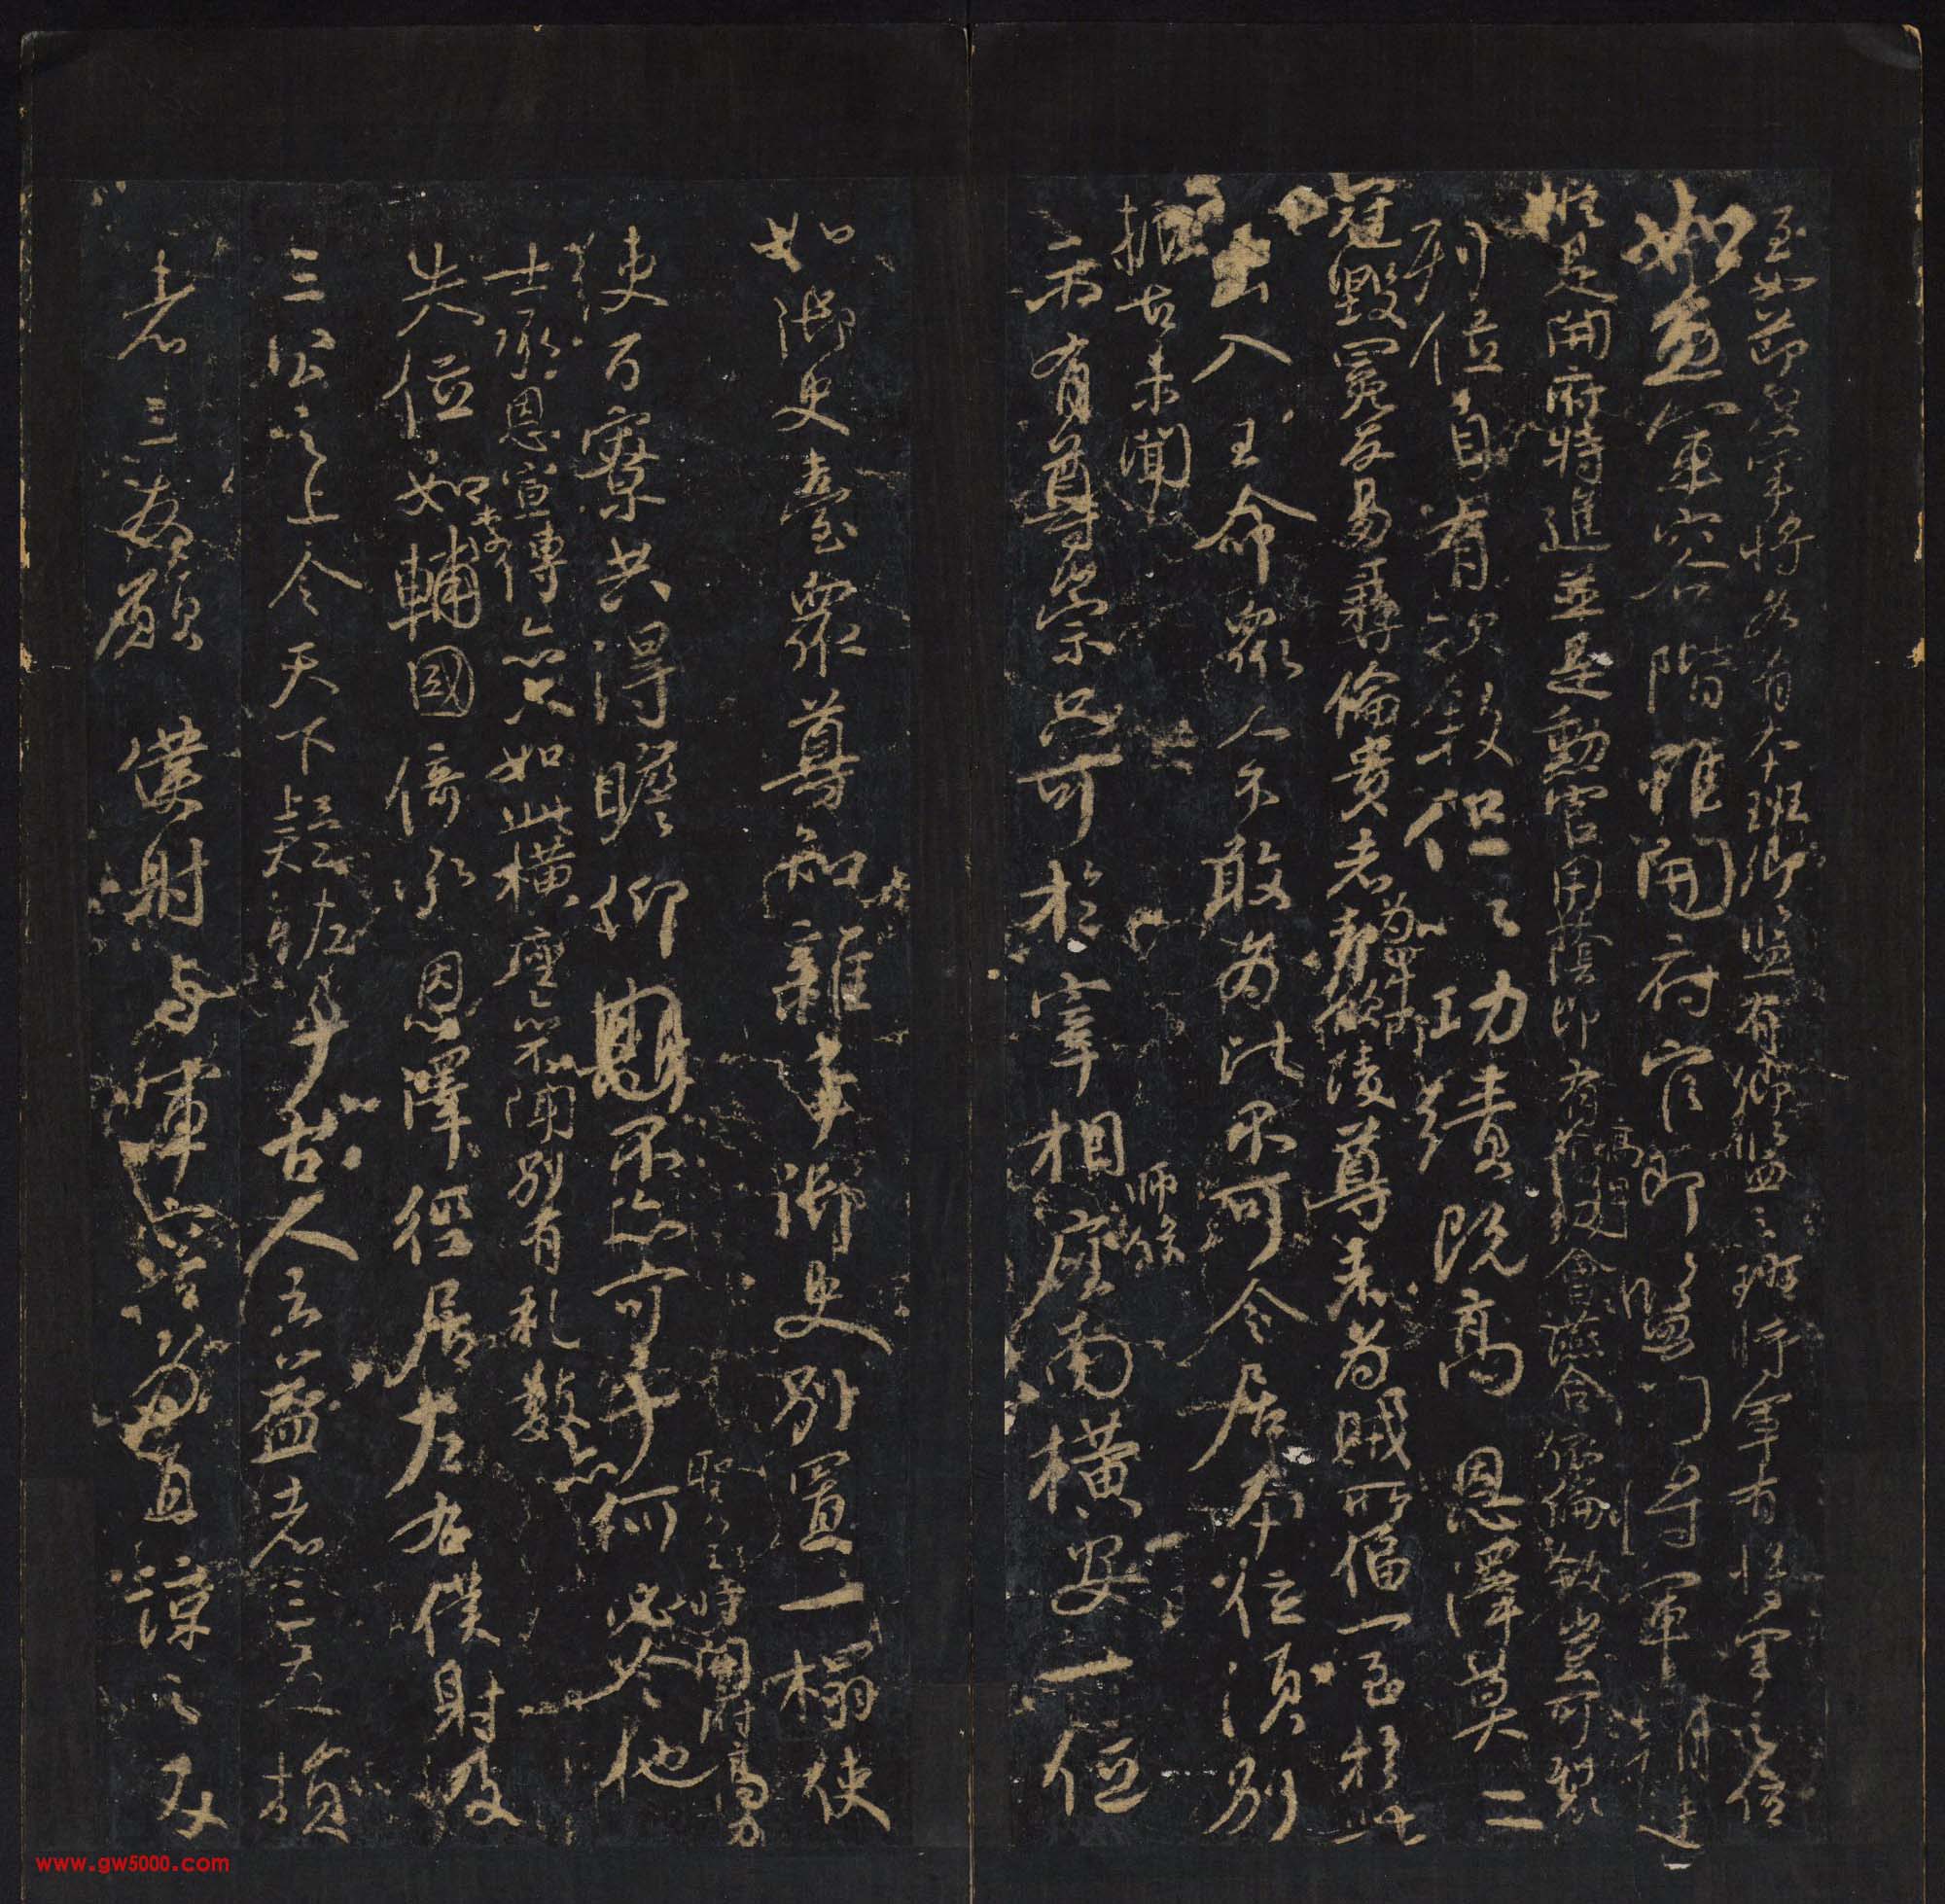 至如節度軍將各有本班卿監有卿監之班將軍有將軍之位
如魚軍容階雖開府官即監門將軍朝廷
縱是開府特進並是勳官用蔭即有高卑會讌合依倫敘豈可裂
列位自有次敘但以功績既高恩澤莫二
冠毀冕反易彝倫貴者為卑所凌尊者為賊所偪一至於此
出入王命眾人不敢為比不可令居本位須別
振古未聞
示有尊崇只可於宰相師保座南橫安一位
如御史臺眾尊知雜事御史別置一榻使
聖皇時開府高力
使百寮共得瞻仰不亦可乎何必令他
士承恩宣傳亦只如此橫座亦不聞別有礼數亦
失位如李輔國倚承恩澤徑居左右僕射及
三公之上令天下疑恠乎古人云益者三友損
者三友願僕射與軍容為直諒之友
www.gw5000.com